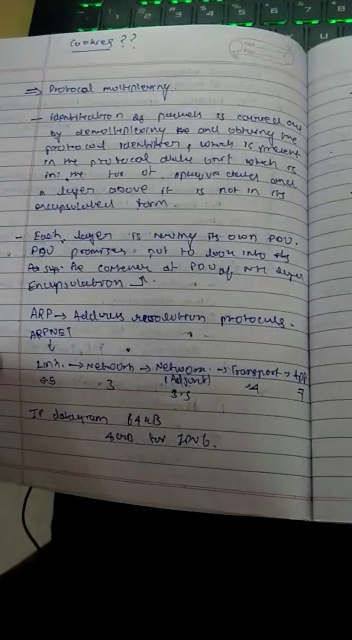 Cookies??
⇒ Protocol multiplexing.
- Identification of packets is carried out
by demultiplexing the and obtaining the
protocol identifier, which is present
in the protocol data unit which is
in the for of opaque data and
a layer above it is not in its
encapsulated form.
- Each layer is having its own PDU.
PDU promises not to look into
the content of PDU of Nth layer
Encapsulation
ARP → Address resolution protocols.
ARPNET
↓
Link → Network → Network → Transport → App
3 (Adjunct) 4 7
3.5
IP datagram 64kB
4GB for IPv6.